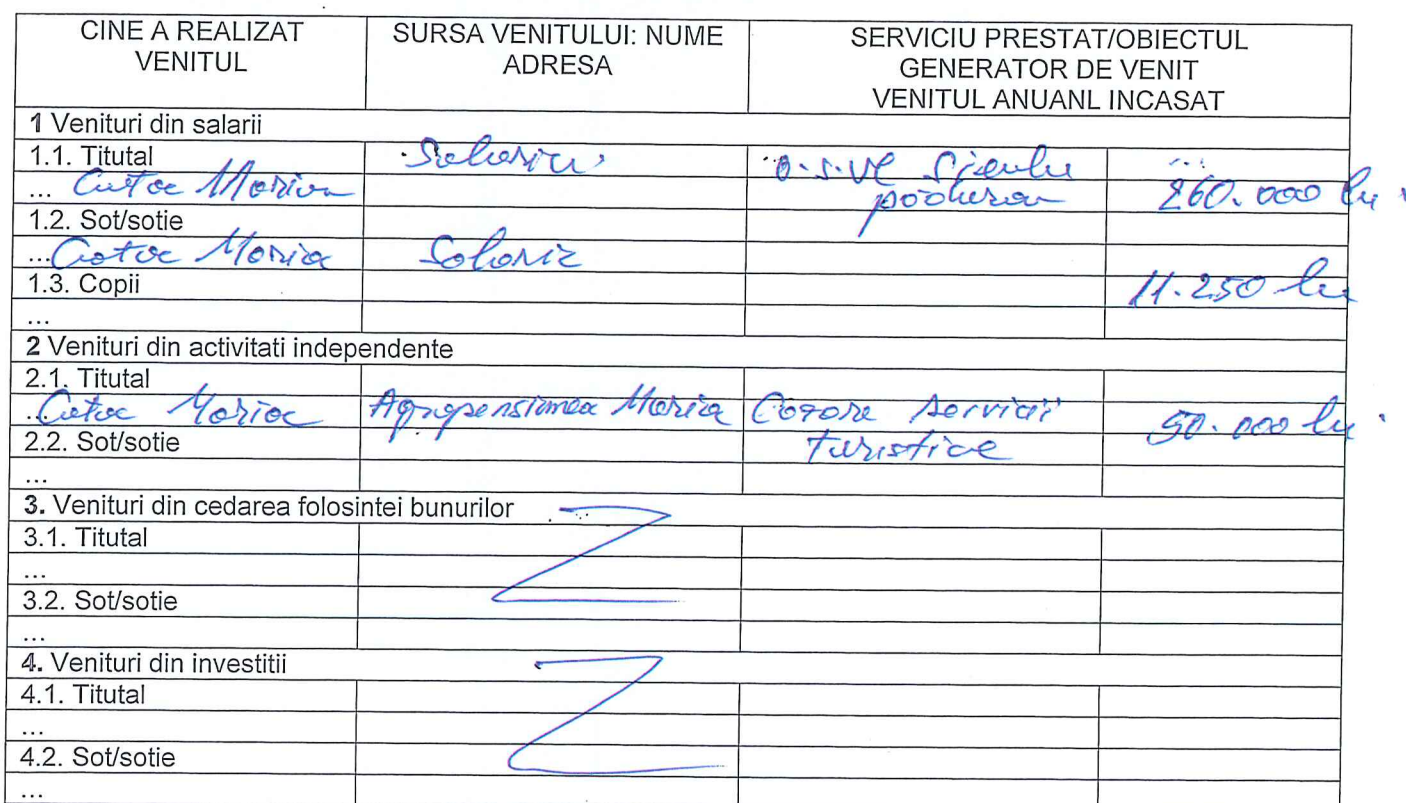 CINE A REALIZAT VENITUL
SURSA VENITULUI: NUME ADRESA
SERVICIU PRESTAT/OBIECTUL GENERATOR DE VENIT VENITUL ANUANL INCASAT
1 Venituri din salarii
1.1. Titutal
... 260.000
1.2. Sot/sotie
... Maria
1.3. Copii 11.250
...
2 Venituri din activitati independente
2.1. Titutal
... Maria Agropensiunea Maria Cazare servicii turistice 50.000
2.2. Sot/sotie
...
3. Venituri din cedarea folosintei bunurilor
3.1. Titutal
...
3.2. Sot/sotie
...
4. Venituri din investitii
4.1. Titutal
...
4.2. Sot/sotie
...